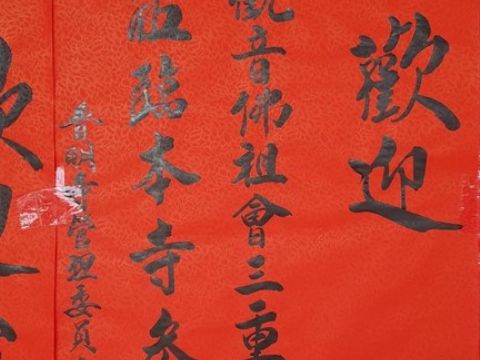 歡迎
觀音佛祖會三重
蒞臨本寺参
普明寺管理委員
歡迎